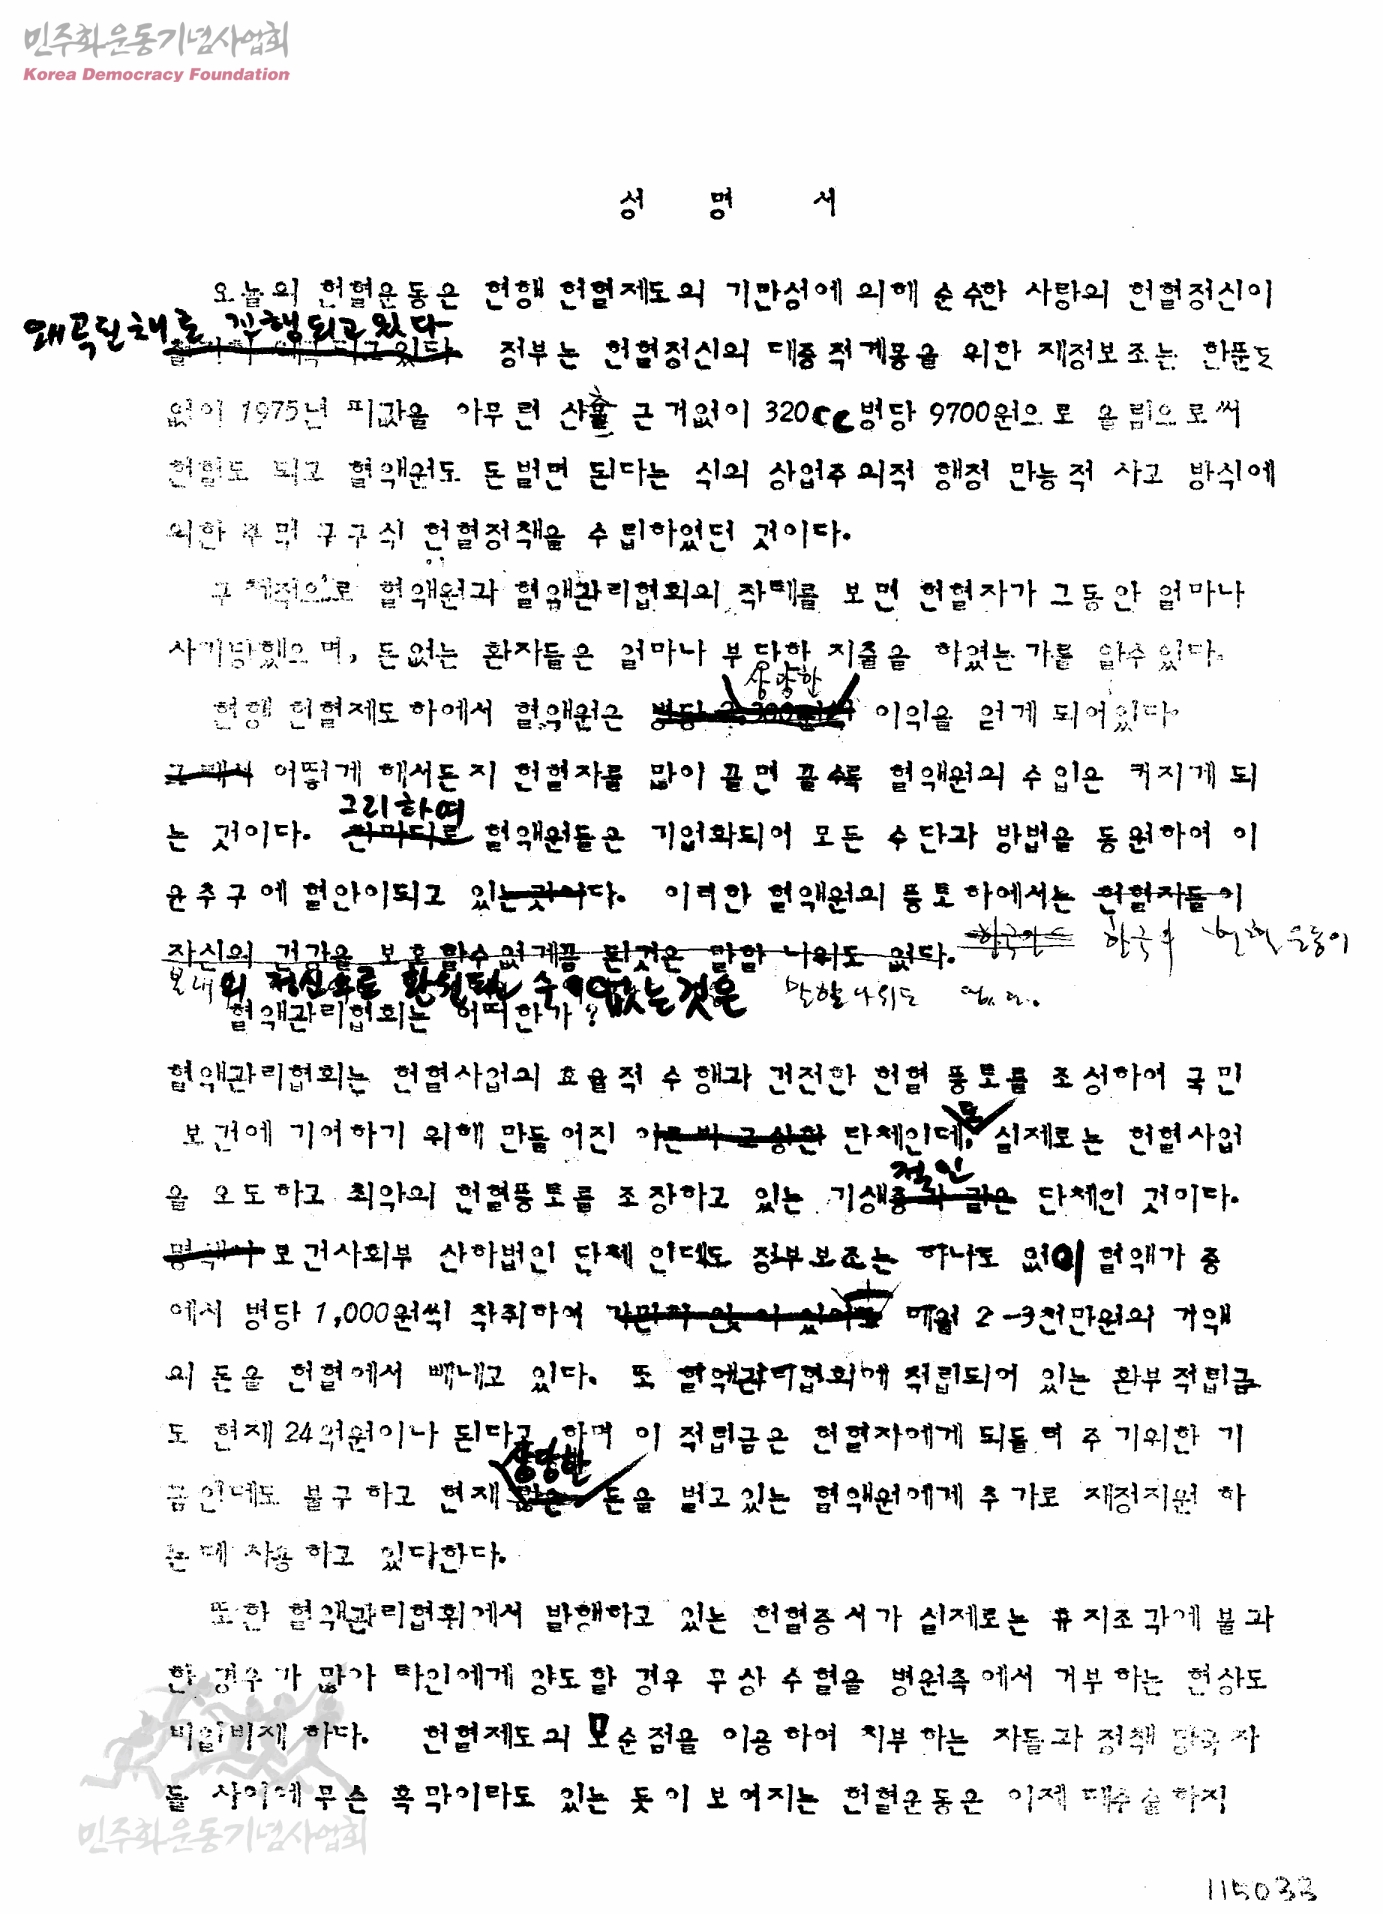 민주화운동기념사업회
Korea Democracy Foundation
성 명 서
오늘의 헌혈운동은 현행 헌혈제도의 기만성에 의해 순수한 사랑의 헌혈정신이
왜곡된채로 꾸행되고있다
있다 정부는 헌혈정신의 대중적계몽을 위한 재정보조는 한푼도
없이 1975년 피값을 아무런 산출 근거없이 320cc병당 9700원으로 올림으로써
헌혈도 되고 혈액원도 돈벌면 된다는 식의 상업주의적 행정 만능적 사고 방식에
의한 주먹 구구식 헌혈정책을 수립하였던 것이다.
구체적으로 혈액원과 혈액관리협회의 작태를 보면 헌혈자가 그동안 얼마나
사기당했으며, 돈없는 환자들은 얼마나 부당한 지출을 하였는가를 알수있다.
상당한
현행 헌혈제도하에서 혈액원은 병당 이익을 얻게 되어있다.
그래서 어떻게 해서든지 헌혈자를 많이 끌면 끌수록 혈액원의 수입은 커지게 되
그리하여
는 것이다. 한마디로 혈액원들은 기업화되어 모든 수단과 방법을 동원하여 이
윤추구에 혈안이되고 있는것이다. 이러한 혈액원의 풍토하에서는 헌혈자들이
자신의 건강을 보호할수없게끔 된것은 말할 나위도 없다. 한국의 헌혈운동이
본래의 정신으로 환원될 수 없는것은 말할나위도 없다.
혈액관리협회는 어떠한가?
혈액관리협회는 헌혈사업의 효율적 수행과 건전한 헌혈 풍토를 조성하여 국민
보건에 기여하기 위해 만들어진 단체인데, 실제로는 헌혈사업
적인
을 오도하고 최악의 헌혈풍토를 조장하고 있는 기생충과 같은 단체인 것이다.
명색이 보건사회부 산하법인 단체 인데도 정부보조는 하나도 없이 혈액가 중
에서 병당 1,000원씩 착취하여 매월 2-3천만원의 거액
의 돈을 헌혈에서 빼내고 있다. 또 혈액관리협회에 적립되어 있는 환부적립금
도 현재 24억원이나 된다고 하며 이 적립금은 헌혈자에게 되돌려 주기위한 기
상당한
금인데도 불구하고 현재 많은 돈을 벌고있는 혈액원에게 추가로 재정지원 하
는데 사용하고 있다한다.
또한 혈액관리협회에서 발행하고 있는 헌혈증서가 실제로는 휴지조각에 불과
한 경우가 많아 타인에게 양도할 경우 무상 수혈을 병원측에서 거부하는 현상도
비일비재 하다. 헌혈제도의 모순점을 이용하여 치부하는 자들과 정책 당국자
들 사이에 무슨 흑막이라도 있는 듯이 보여지는 헌혈운동은 이제 대수술하지
민주화운동기념사업회
115033